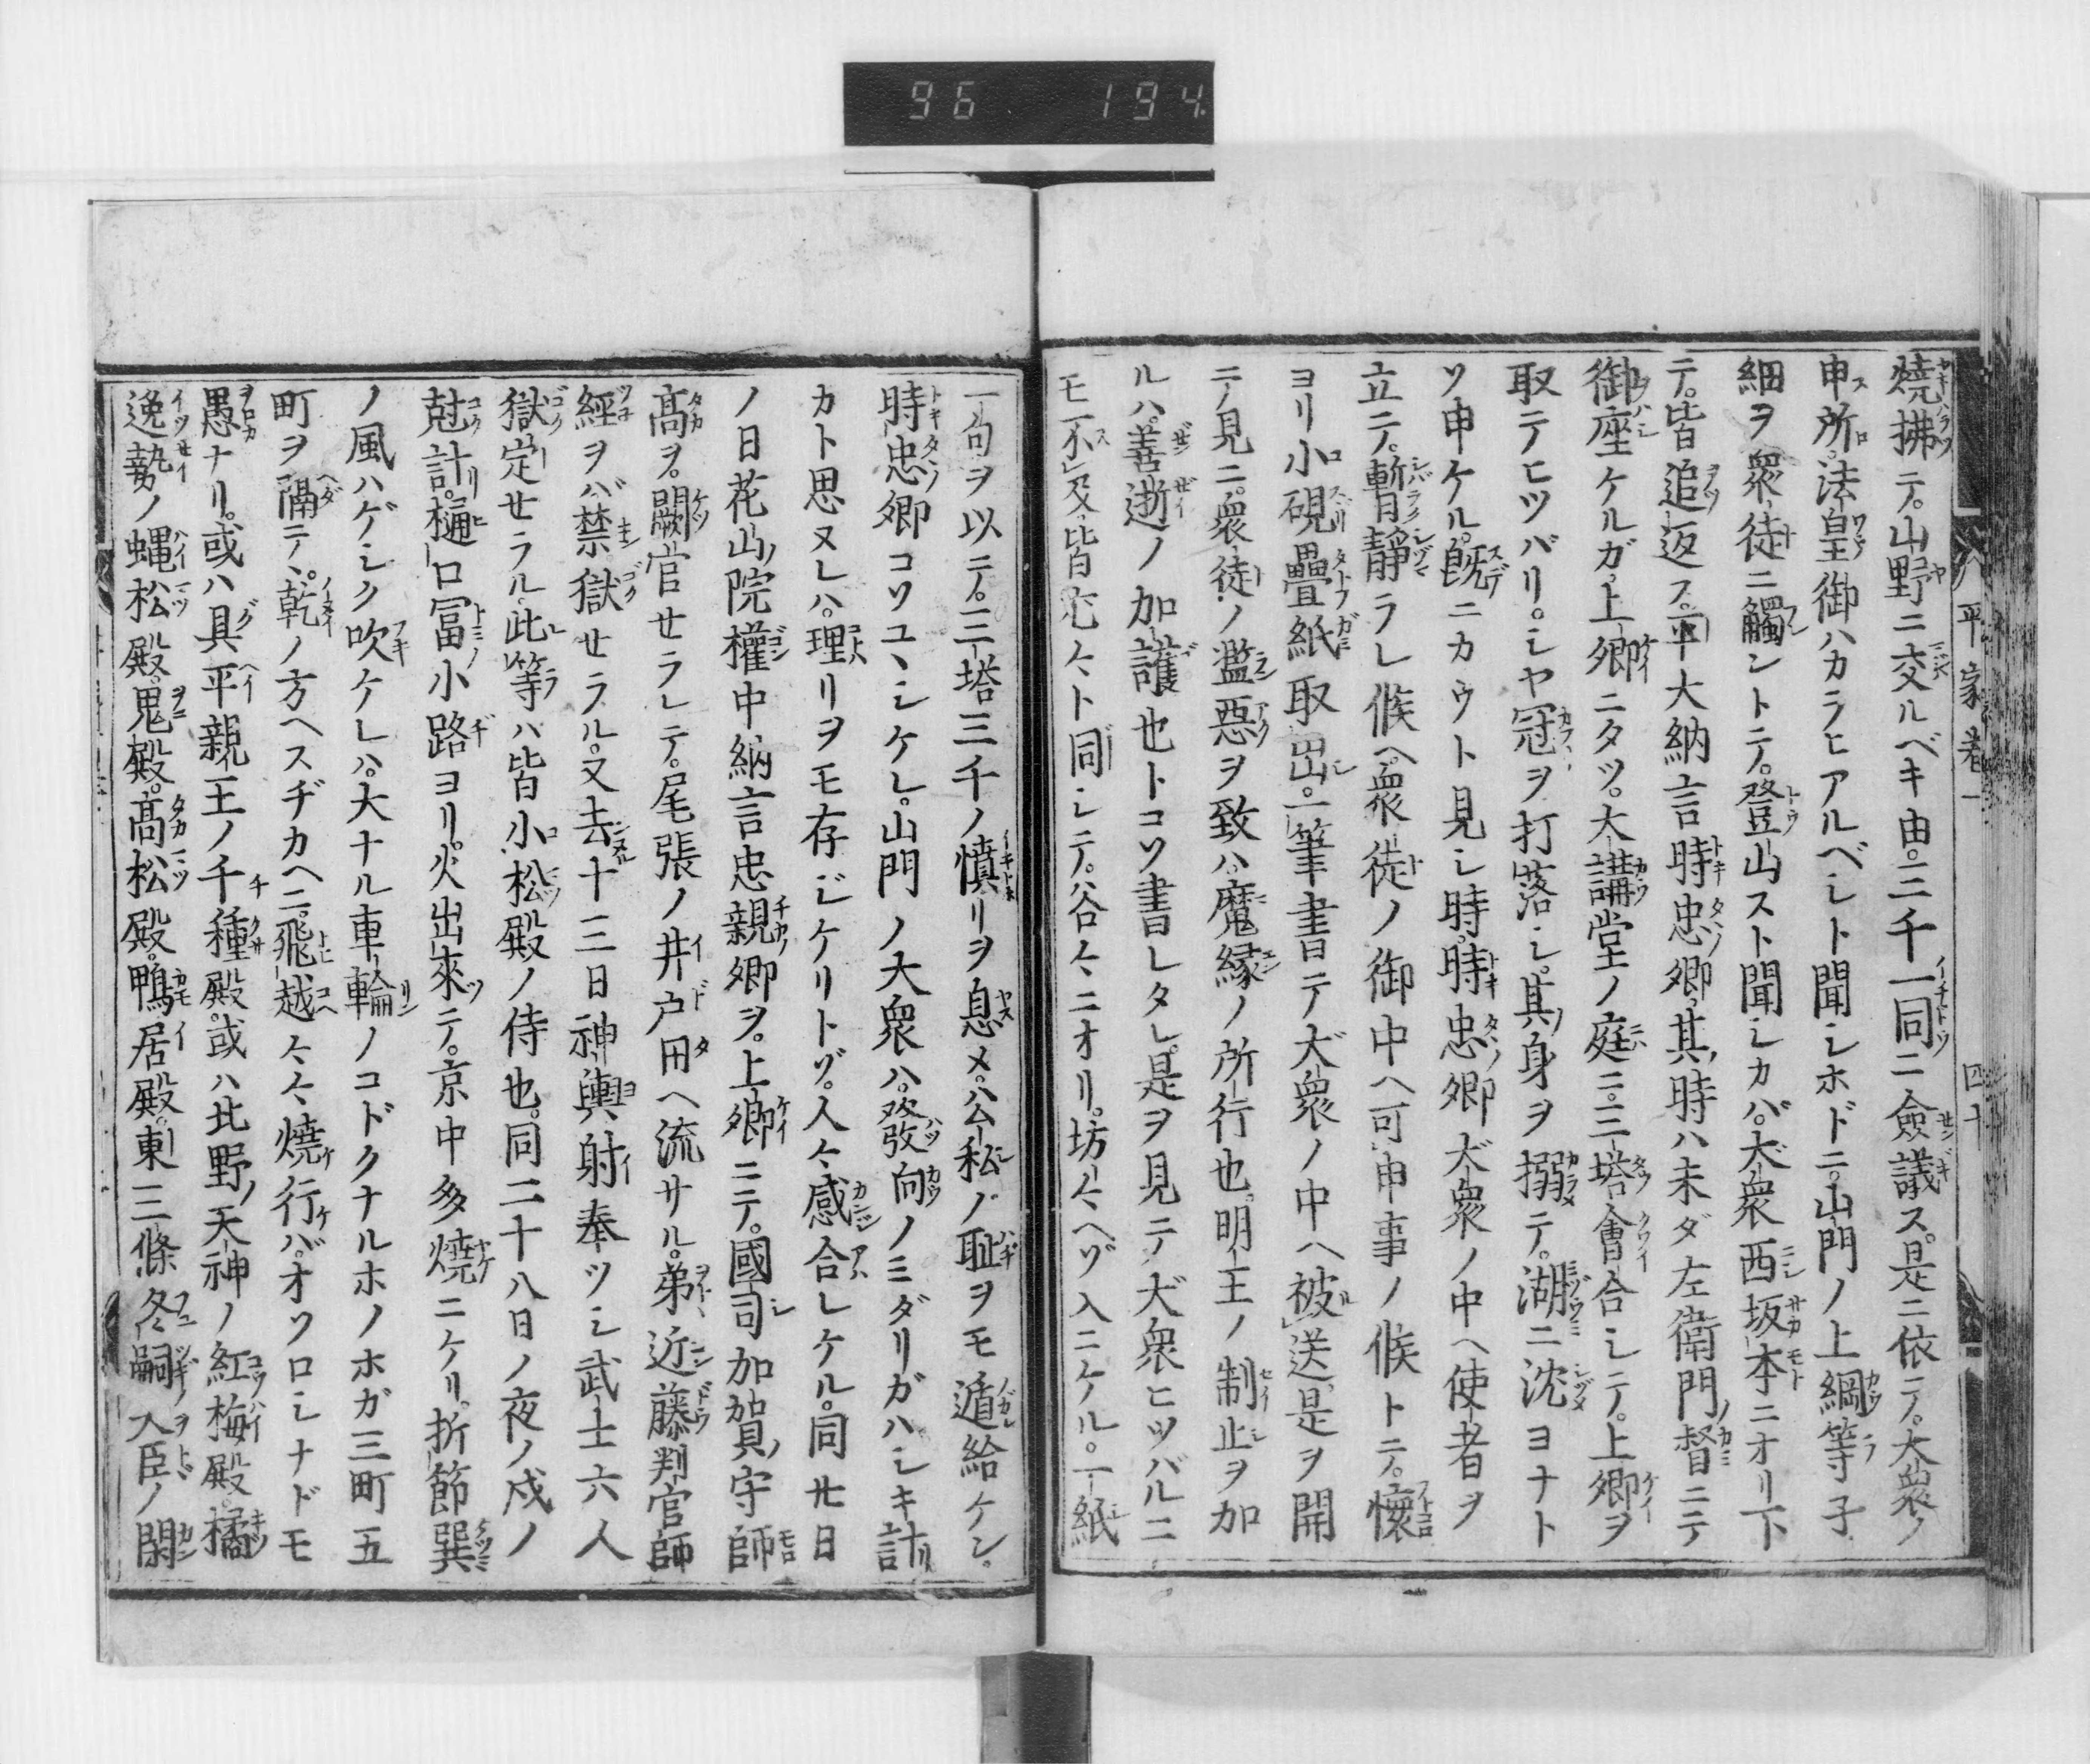 96 194
平家巻一 四十
燒拂テ。山野ニ交ルベキ由。三千一同ニ僉議ス。是ニ依テ。大衆ノ
申所。法皇御ハカラヒアルベシト聞シホドニ。山門ノ上綱等子
細ヲ衆徒ニ觸ントテ。登山スト聞シカバ。大衆西坂本ニオリ下
テ。皆追返ス。平大納言時忠卿。其時ハ未ダ左衛門ノ督ニテ
御座ケルガ。上卿ニタツ。大講堂ノ庭ニ。三塔會合シテ。上卿ヲ
取テヒツパリ。シヤ冠ヲ打落シ。其身ヲ搦テ。湖ニ沈ヨナト
ソ申ケル。既ニカウト見シ時。時忠卿大衆ノ中ヘ使者ヲ
立テ。暫靜ラレ候ヘ。衆徒ノ御中ヘ可申事ノ候トテ。懷
ヨリ小硯疊紙取出シ。一筆書テ大衆ノ中ヘ被送。是ヲ開
テ見ニ。衆徒ノ濫惡ヲ致ハ。魔縁ノ所行也。明王ノ制止ヲ加
ルハ。善逝ノ加護也トコソ書レタレ。是ヲ見テ大衆ヒツパルニ
モ不及。皆尤々ト同シテ。谷々ニオリ。坊々ヘゾ入ニケル。一紙
一句ヲ以テ。三塔三千ノ憤リヲ息メ。公私ノ耻ヲモ遁給ケン。
時忠卿コソユヽシケレ。山門ノ大衆ハ。發向ノミダリガハシキ計リ
カト思ヌレハ。理リヲモ存ジケリトゾ。人々感合レケル。同廿日
ノ日花山ノ院權中納言忠親卿ヲ。上卿ニテ。國司加賀ノ守師
高ヲ。闕官セラレテ。尾張ノ井戸田ヘ流サル。弟近藤判官師
經ヲバ禁獄セラル。又去十三日神輿射奉ツシ武士六人
獄定セラル。此等ハ皆小松殿ノ侍也。同二十八日ノ夜ノ戌ノ
尅計。樋口冨小路ヨリ。火出來テ。京中多燒ニケリ。折節巽
ノ風ハゲシク吹ケレハ。大ナル車輪ノコドクナルホノホガ三町五
町ヲ隔テヽ。乾ノ方ヘスヂカヘニ。飛越々々燒行バ。オソロシナドモ
愚ナリ。或ハ具平親王ノ千種殿。或ハ北野ノ天神ノ紅梅殿。橘
逸勢ノ蝿松殿。鬼殿。髙松殿。鴨居殿。東三條。冬嗣ノ大臣ノ閑